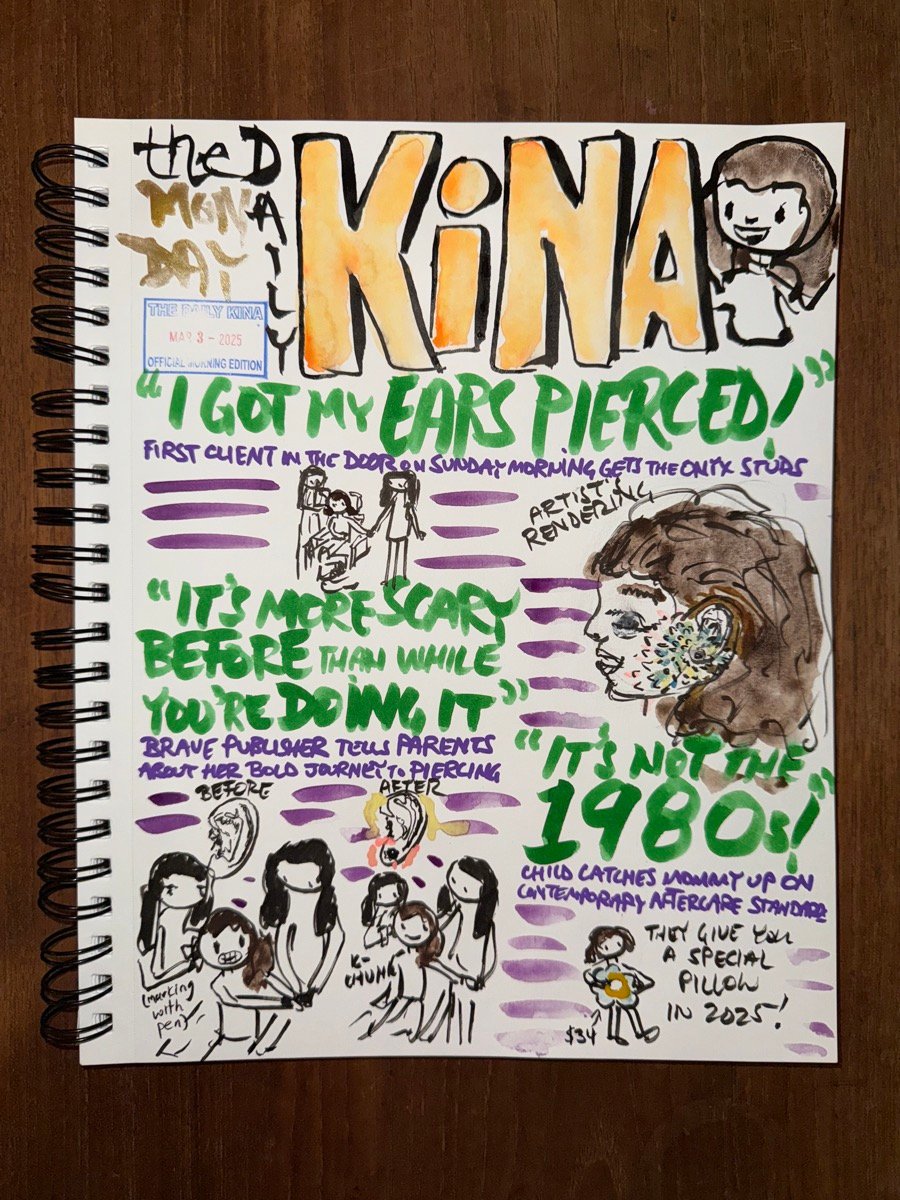 the DAILY
KiNA
MONDAY
THE DAILY KINA
MAR 3 - 2025
OFFICIAL MORNING EDITION
"I GOT MY EARS PIERCED!"
FIRST CLIENT IN THE DOOR ON SUNDAY MORNING GETS THE ONYX STUDS
ARTIST'S
RENDERING
"IT'S MORE SCARY
BEFORE THAN WHILE
YOU'RE DOING IT"
BRAVE PUBLISHER TELLS PARENTS
ABOUT HER BOLD JOURNEY TO PIERCING
BEFORE
AFTER
(marking
with
pen)
K-
CHUNK
"IT'S NOT THE
1980s!"
CHILD CATCHES MOMMY UP ON
CONTEMPORARY AFTERCARE STANDARDS
THEY GIVE YOU
A SPECIAL
PILLOW
IN 2025!
$34